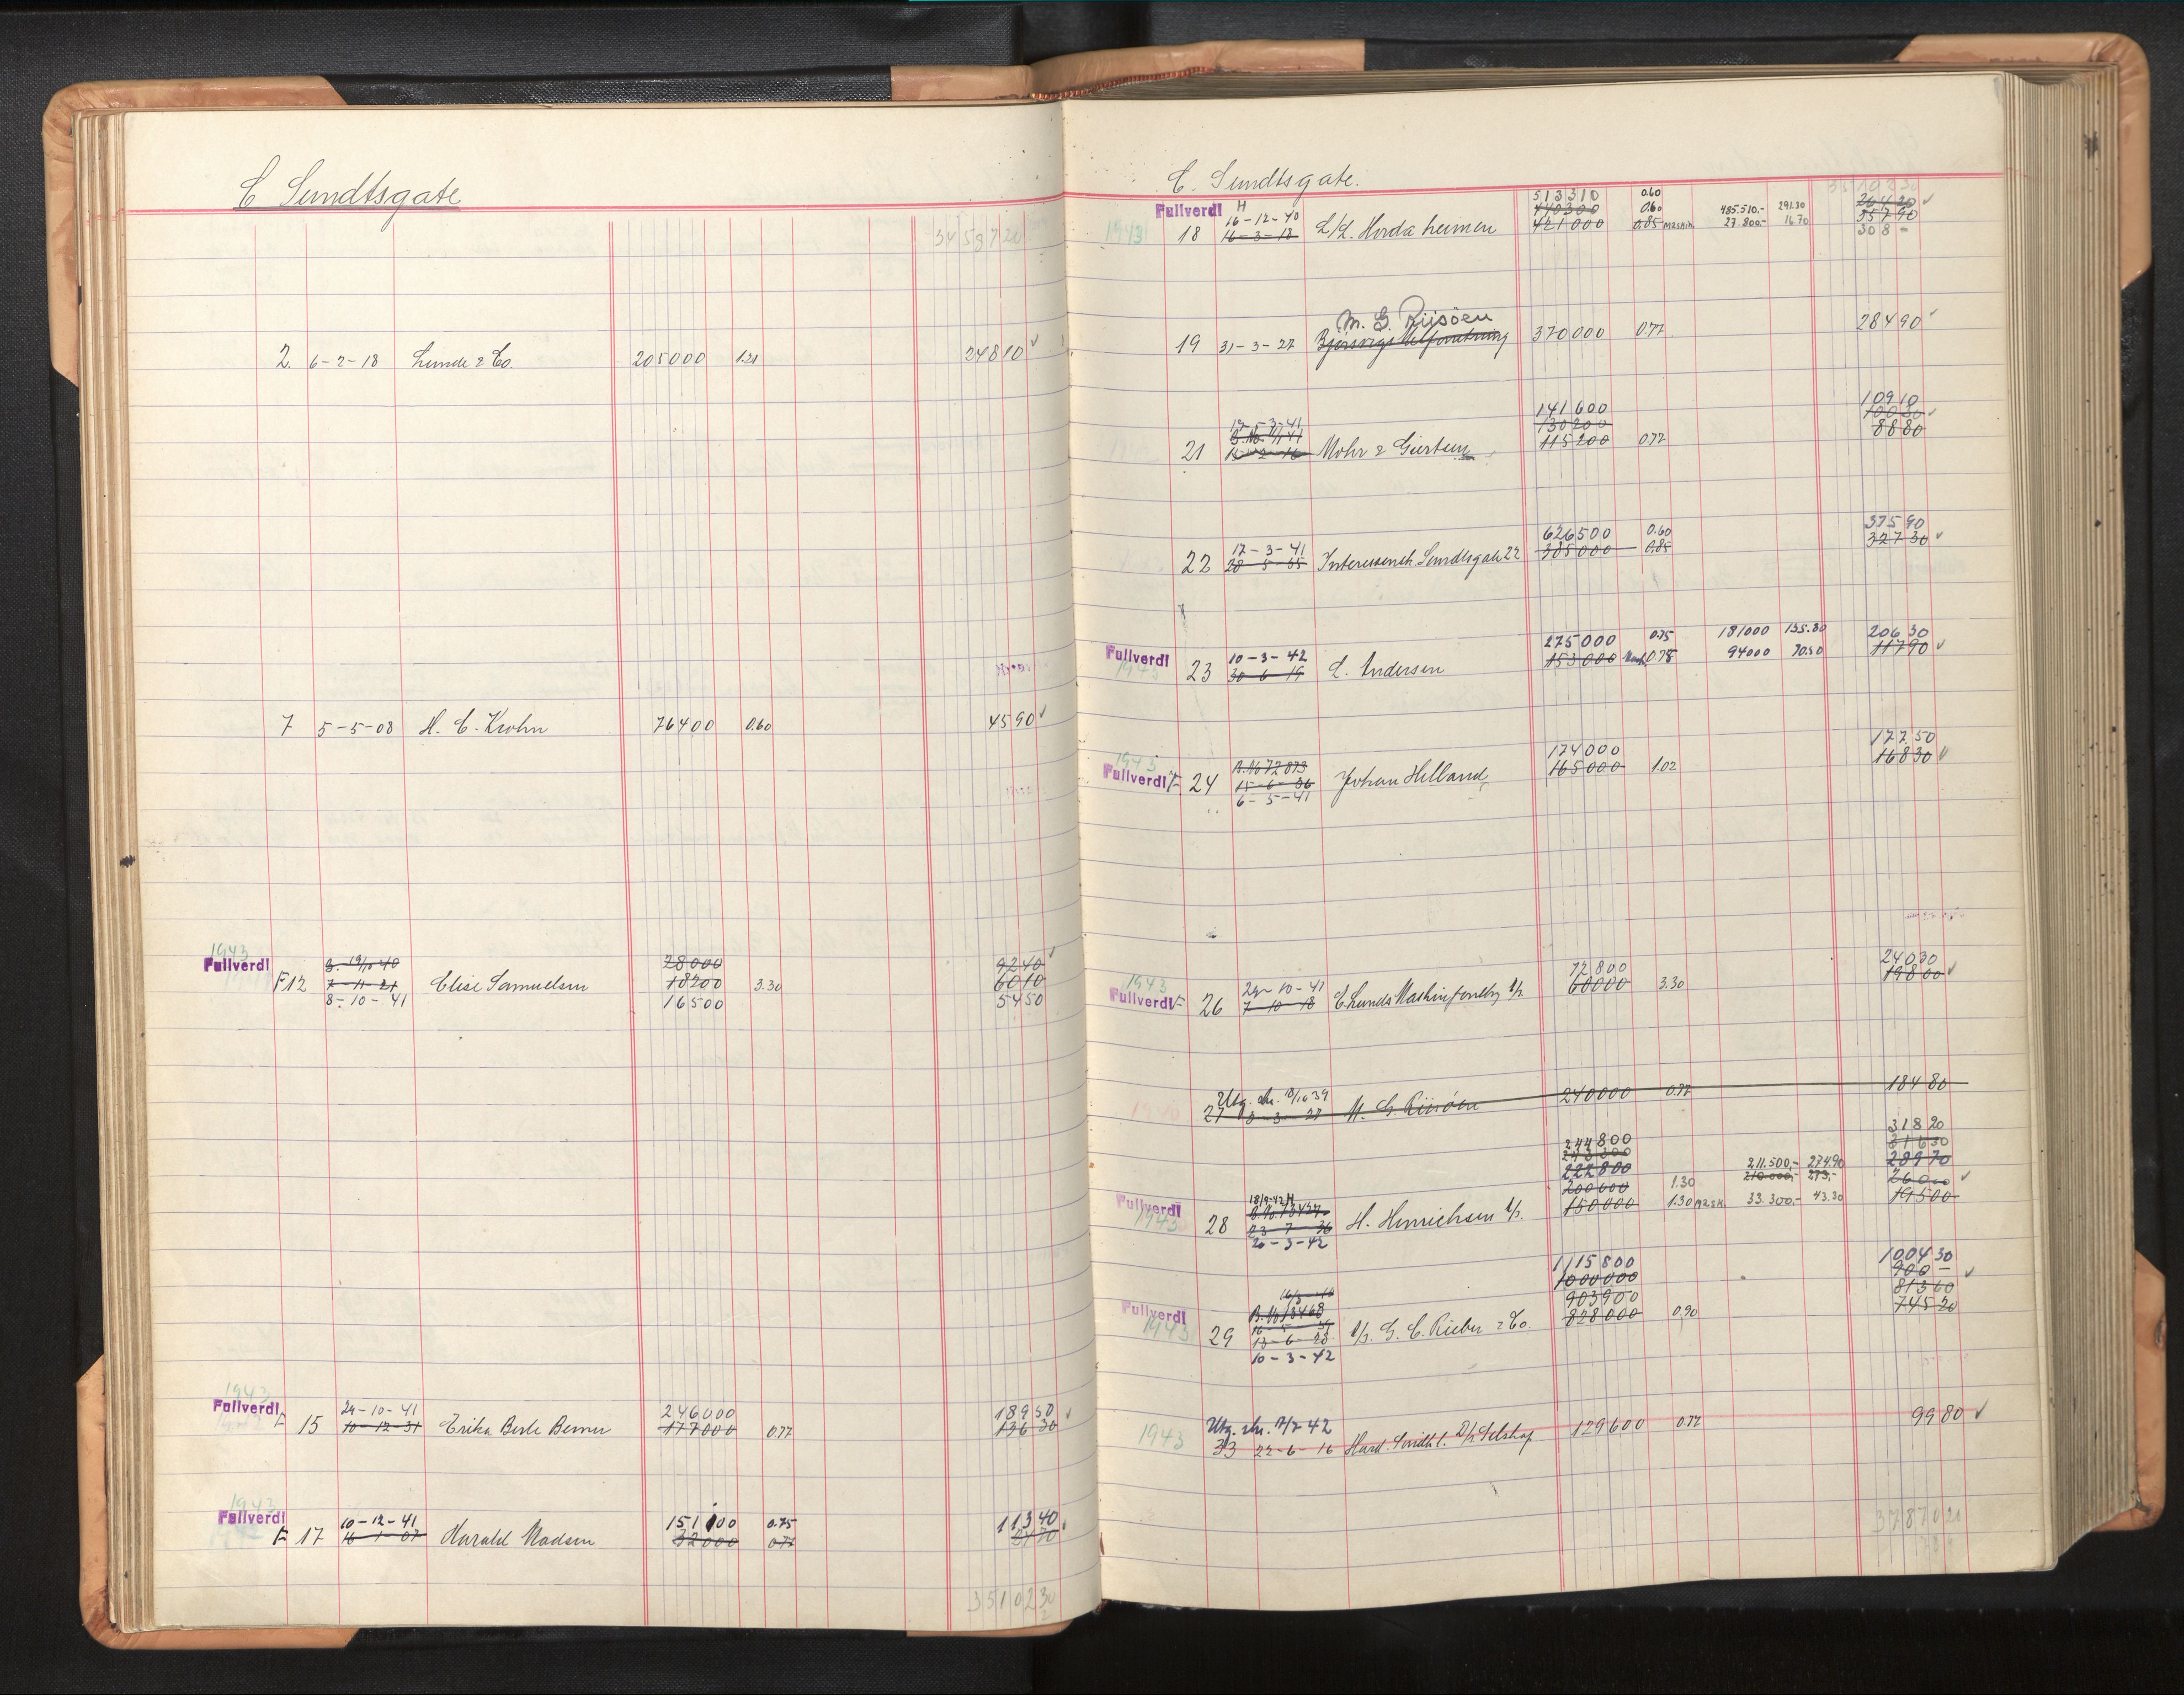 C Sundtsgate
34 5 8 7 20
2. 6-2-18 Lunde & Co. 205000 1.21 248 10
7 5-5-08 H. C. Krohn 76400 0.60 45 90
1943
Fullverdi
B. 19/10 40 28000 92 40
F 12 7-11-21 Elise Samuelsen 18200 3.30 60 10
8-10-41 16500 54 50
1943
Fullverdi
24-10-41 246000 189 50
F 15 10-12-31 Erika Berner 177000 0.77 136 30
1943
Fullverdi
10-12-41 151100 0.75 113 40
F 17 16-1-07 Harald Madsen 32000 0.77 24 70
3 5 1 0 2 30
C. Sundtsgate.
35 10 2 30
Fullverdi H 513310 0.60 264 20
1943 16-12-40 440300 0.60 485.510.- 291.30 357 90
18 16-3-18 L/L. Hordaheimen 421000 0.85 Maskin. 27.800.- 16.70 308 -
M. G. Riisöen
19 31-3-27 370000 0.77 284 90
17-3-41 141600 109 10
130200 100 30
21 Mohr & Giertsen 115200 0.77 88 80
17-3-41 626500 0.60 375 90
22 28-5-35 Interessentsk. Sundtsgate 22 385000 0.85 327 30
Fullverdi 10-3-42 275000 0.75 181000 135.80 206 30
1943 23 30-6-19 L. Andersen 153000 Mask. 0.75 94000 70.50 117 90
1943
Fullverdi B. No 72873 174000 177 50
F 24 15-6-36 Johan Helland 165000 1.02 168 30
6-5-41
1943
Fullverdi 24-10-41 72800 240 30
F 26 7-10-18 E. Lunds Maskinforretng A/S. 60000 3.30 198 00
Utg. skr. 3/10 39
1940 27 3-3-27 M. G. Riisöen 240000 0.77 184 80
244800 318 20
243300 316 30
222800 211.500,- 274.90 289 70
18/9-42 H 200000 1.30 210.000,- 273,- 260 00
Fullverdi B. No. 73437 150000 1.30 Mask. 33.300.- 43.30 195 00
1943 28 23-7-36 H. Henrichsen A/S.
20-3-42
1115800 1004 30
1000000 900 -
Fullverdi B. No 73468 903900 813 60
1943 828000 0.90 745 20
29 13-6-28 A/S. G. C. Rieber & Co.
10-3-42
Utg. skr. 7/7 42
1943 33 22-6-16 129600 0.77 99 80
3 7 8 7 0 20